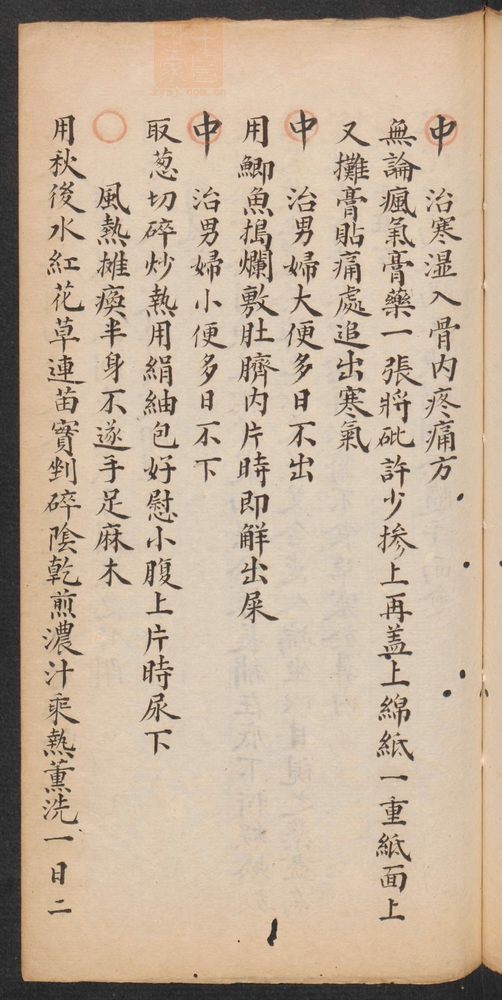 中　治寒湿入骨内疼痛方
無論瘋氣膏藥一張將砒許少掺上再盖上綿紙一重紙面上
又攤膏貼痛處追出寒氣
中　治男婦大便多日不出
用鯽魚搗爛敷肚臍内片時即觧出屎
中　治男婦小便多日不下
取葱切碎炒熱用絹紬包好慰小腹上片時尿下
風熱摊瘓半身不遂手足麻木
用秋後水紅花草連苗實剉碎隂乾煎濃汁乘熱薰洗一日二